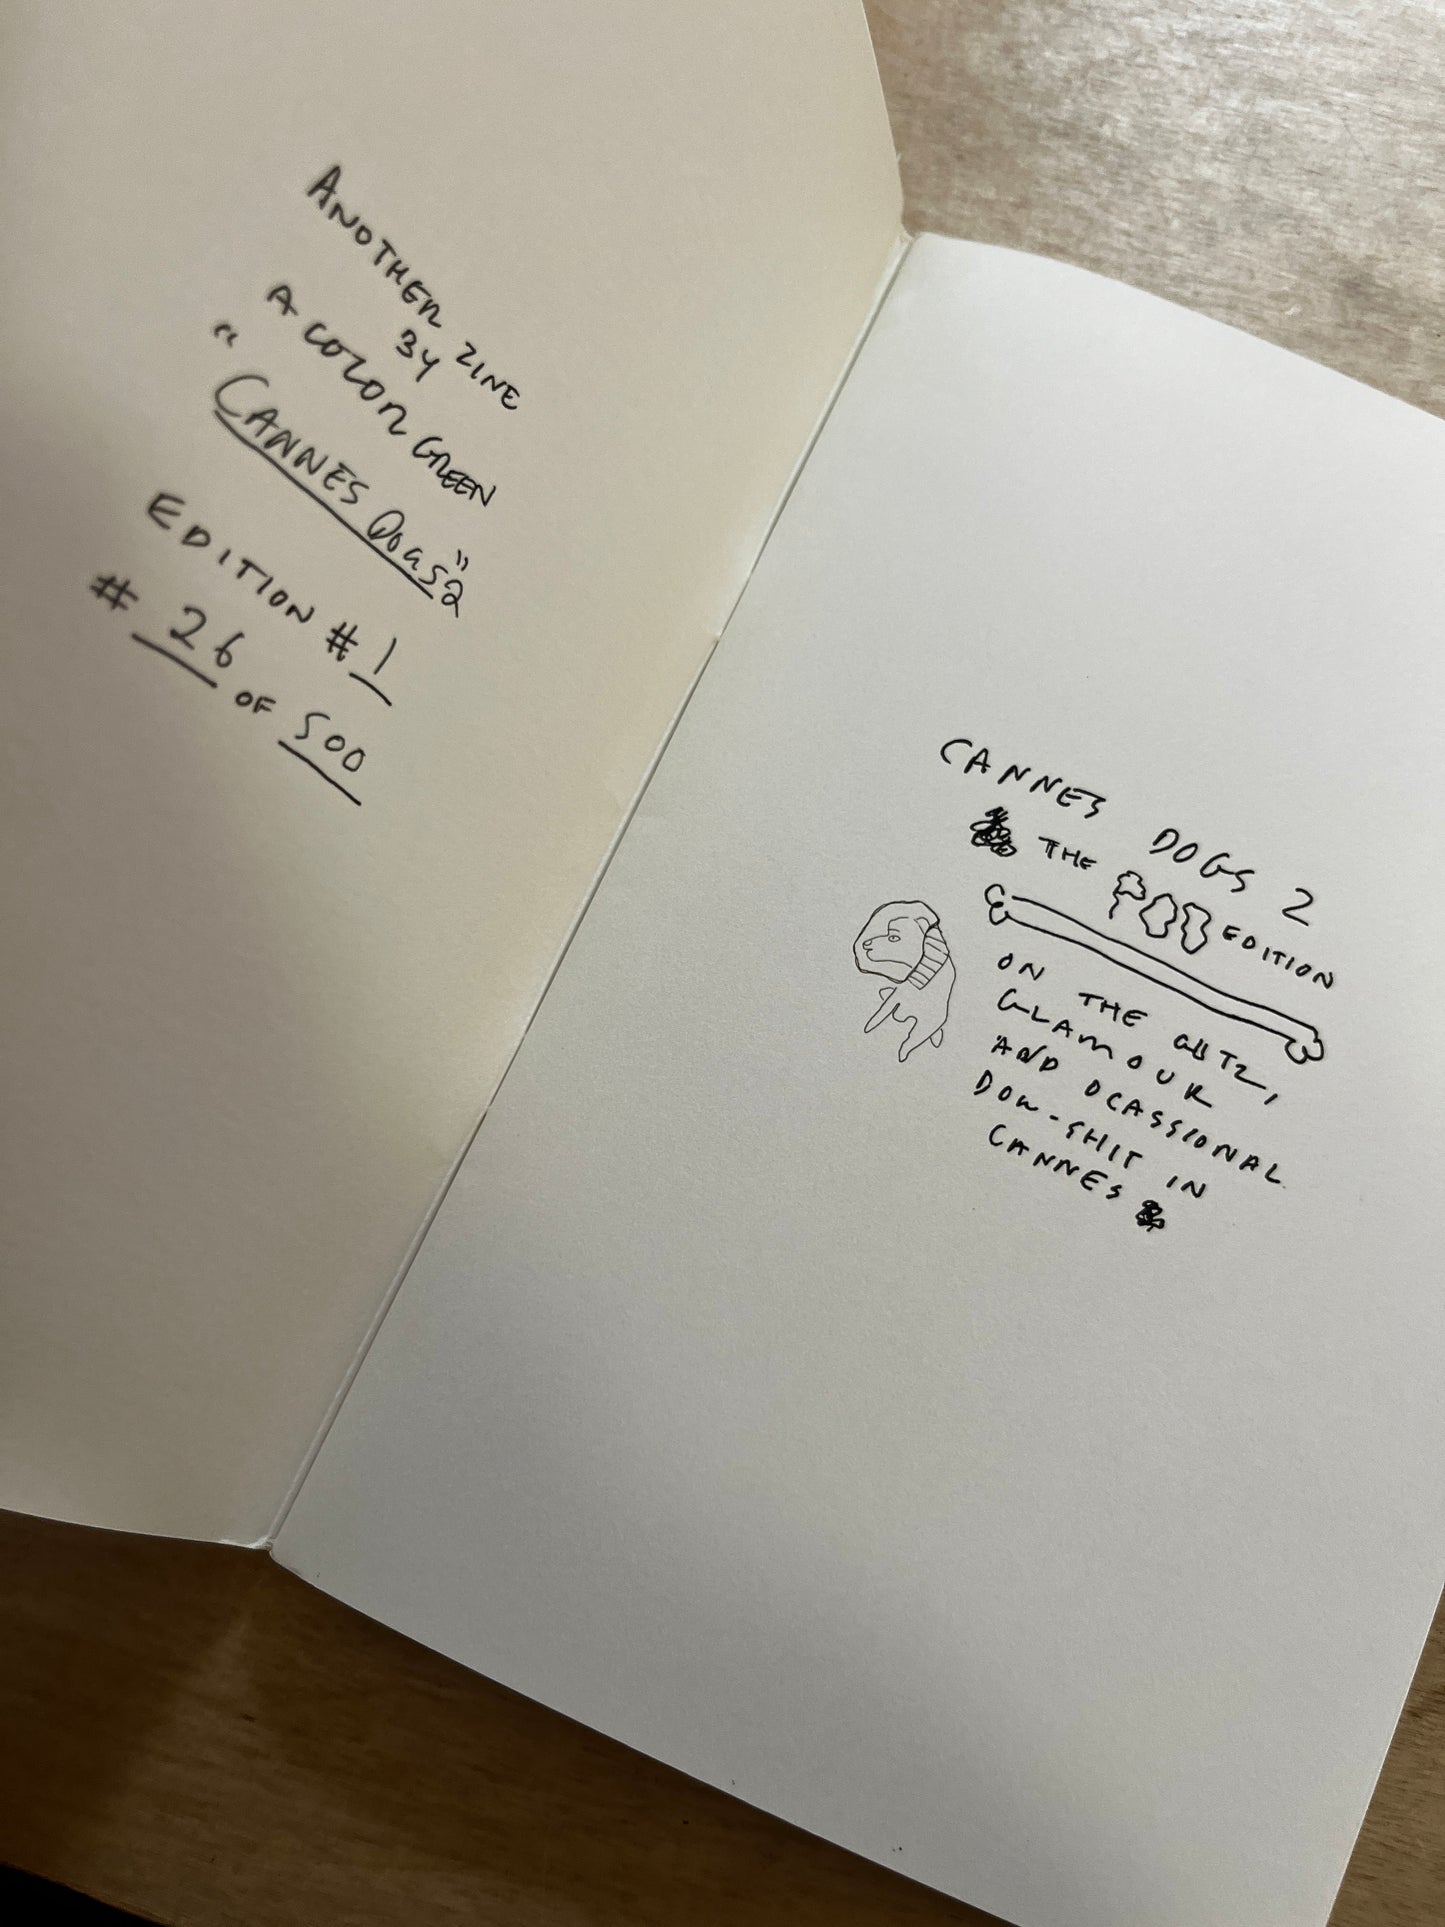 ANOTHER ZINE
BY
A COLOR GREEN
"CANNES DOGS 2"
EDITION #1
# 26 OF 500
CANNES DOGS 2
THE POO EDITION
ON THE GLITZ,
GLAMOUR
AND OCASSIONAL
DOG-SHIT IN
CANNES